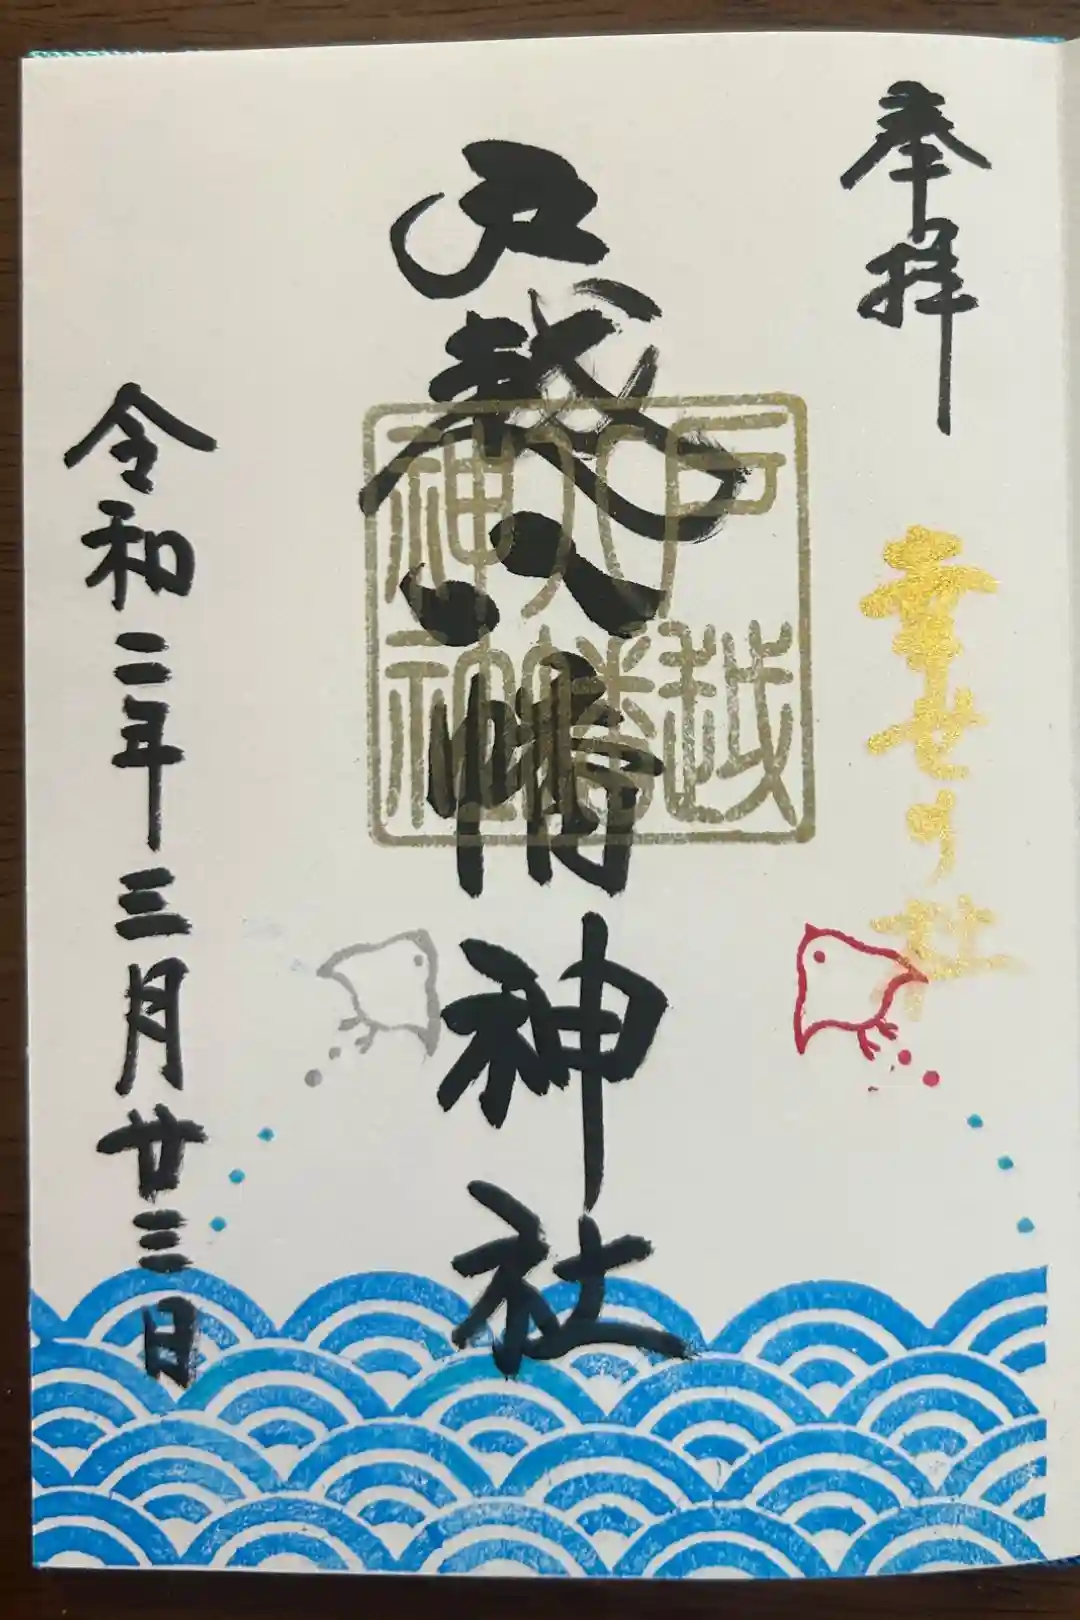 奉拝
幸せり社
戸越八幡神社
戸越八幡神社
令和二年三月廿三日